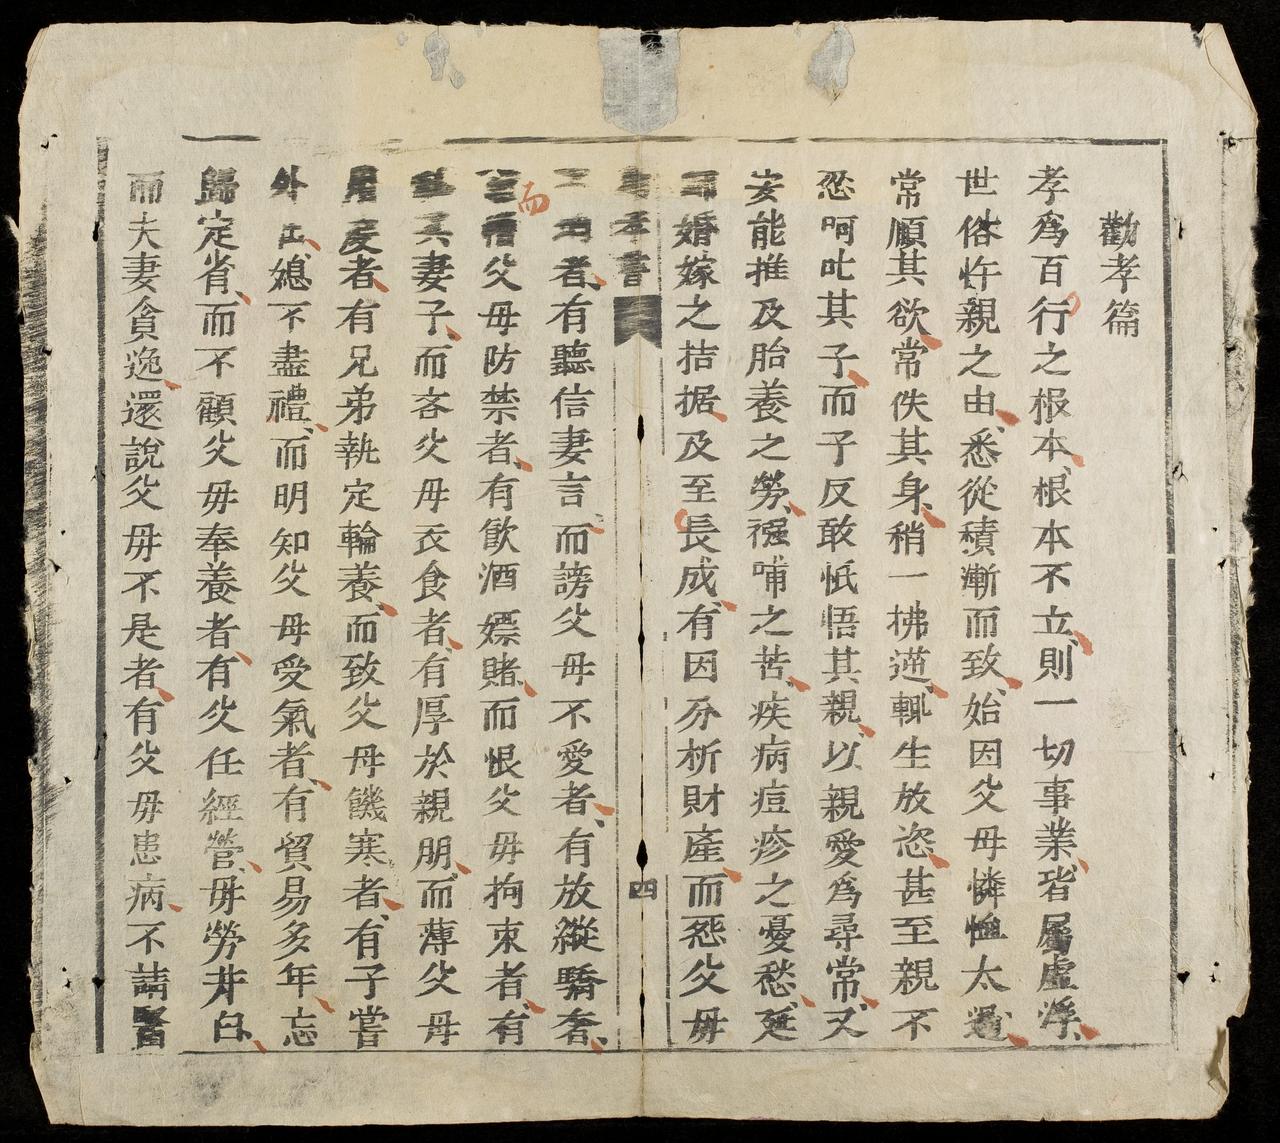 勸孝篇
孝為百行之根本、根本不立、則一切事業、皆屬虛浮、
世俗忤親之由、悉從積漸而致、始因父母憐恤太過、
常順其欲、常佚其身、稍一拂逆、輒生放恣、甚至親不
忍呵叱其子、而子反敢牴悟其親、以親愛為尋常、又
安能推及胎養之勞、襁哺之苦、疾病痘疹之憂愁、延
師婚嫁之拮据、及至長成、有因分析財產、而怨父母
孝書
四
者、有聽信妻言、而謗父母不愛者、有放縱驕奢、
而
父母防禁者、有飲酒嫖賭、而恨父母拘束者、有
其妻子、而吝父母衣食者、有厚於親朋、而薄父母
者、有兄弟執定輪養、而致父母饑寒者、有子嘗
外出、媳不盡禮、而明知父母受氣者、有貿易多年、忘
歸定省、而不顧父母奉養者、有父任經營、母勞井臼、
而夫妻貪逸、還說父母不是者、有父母患病、不請醫